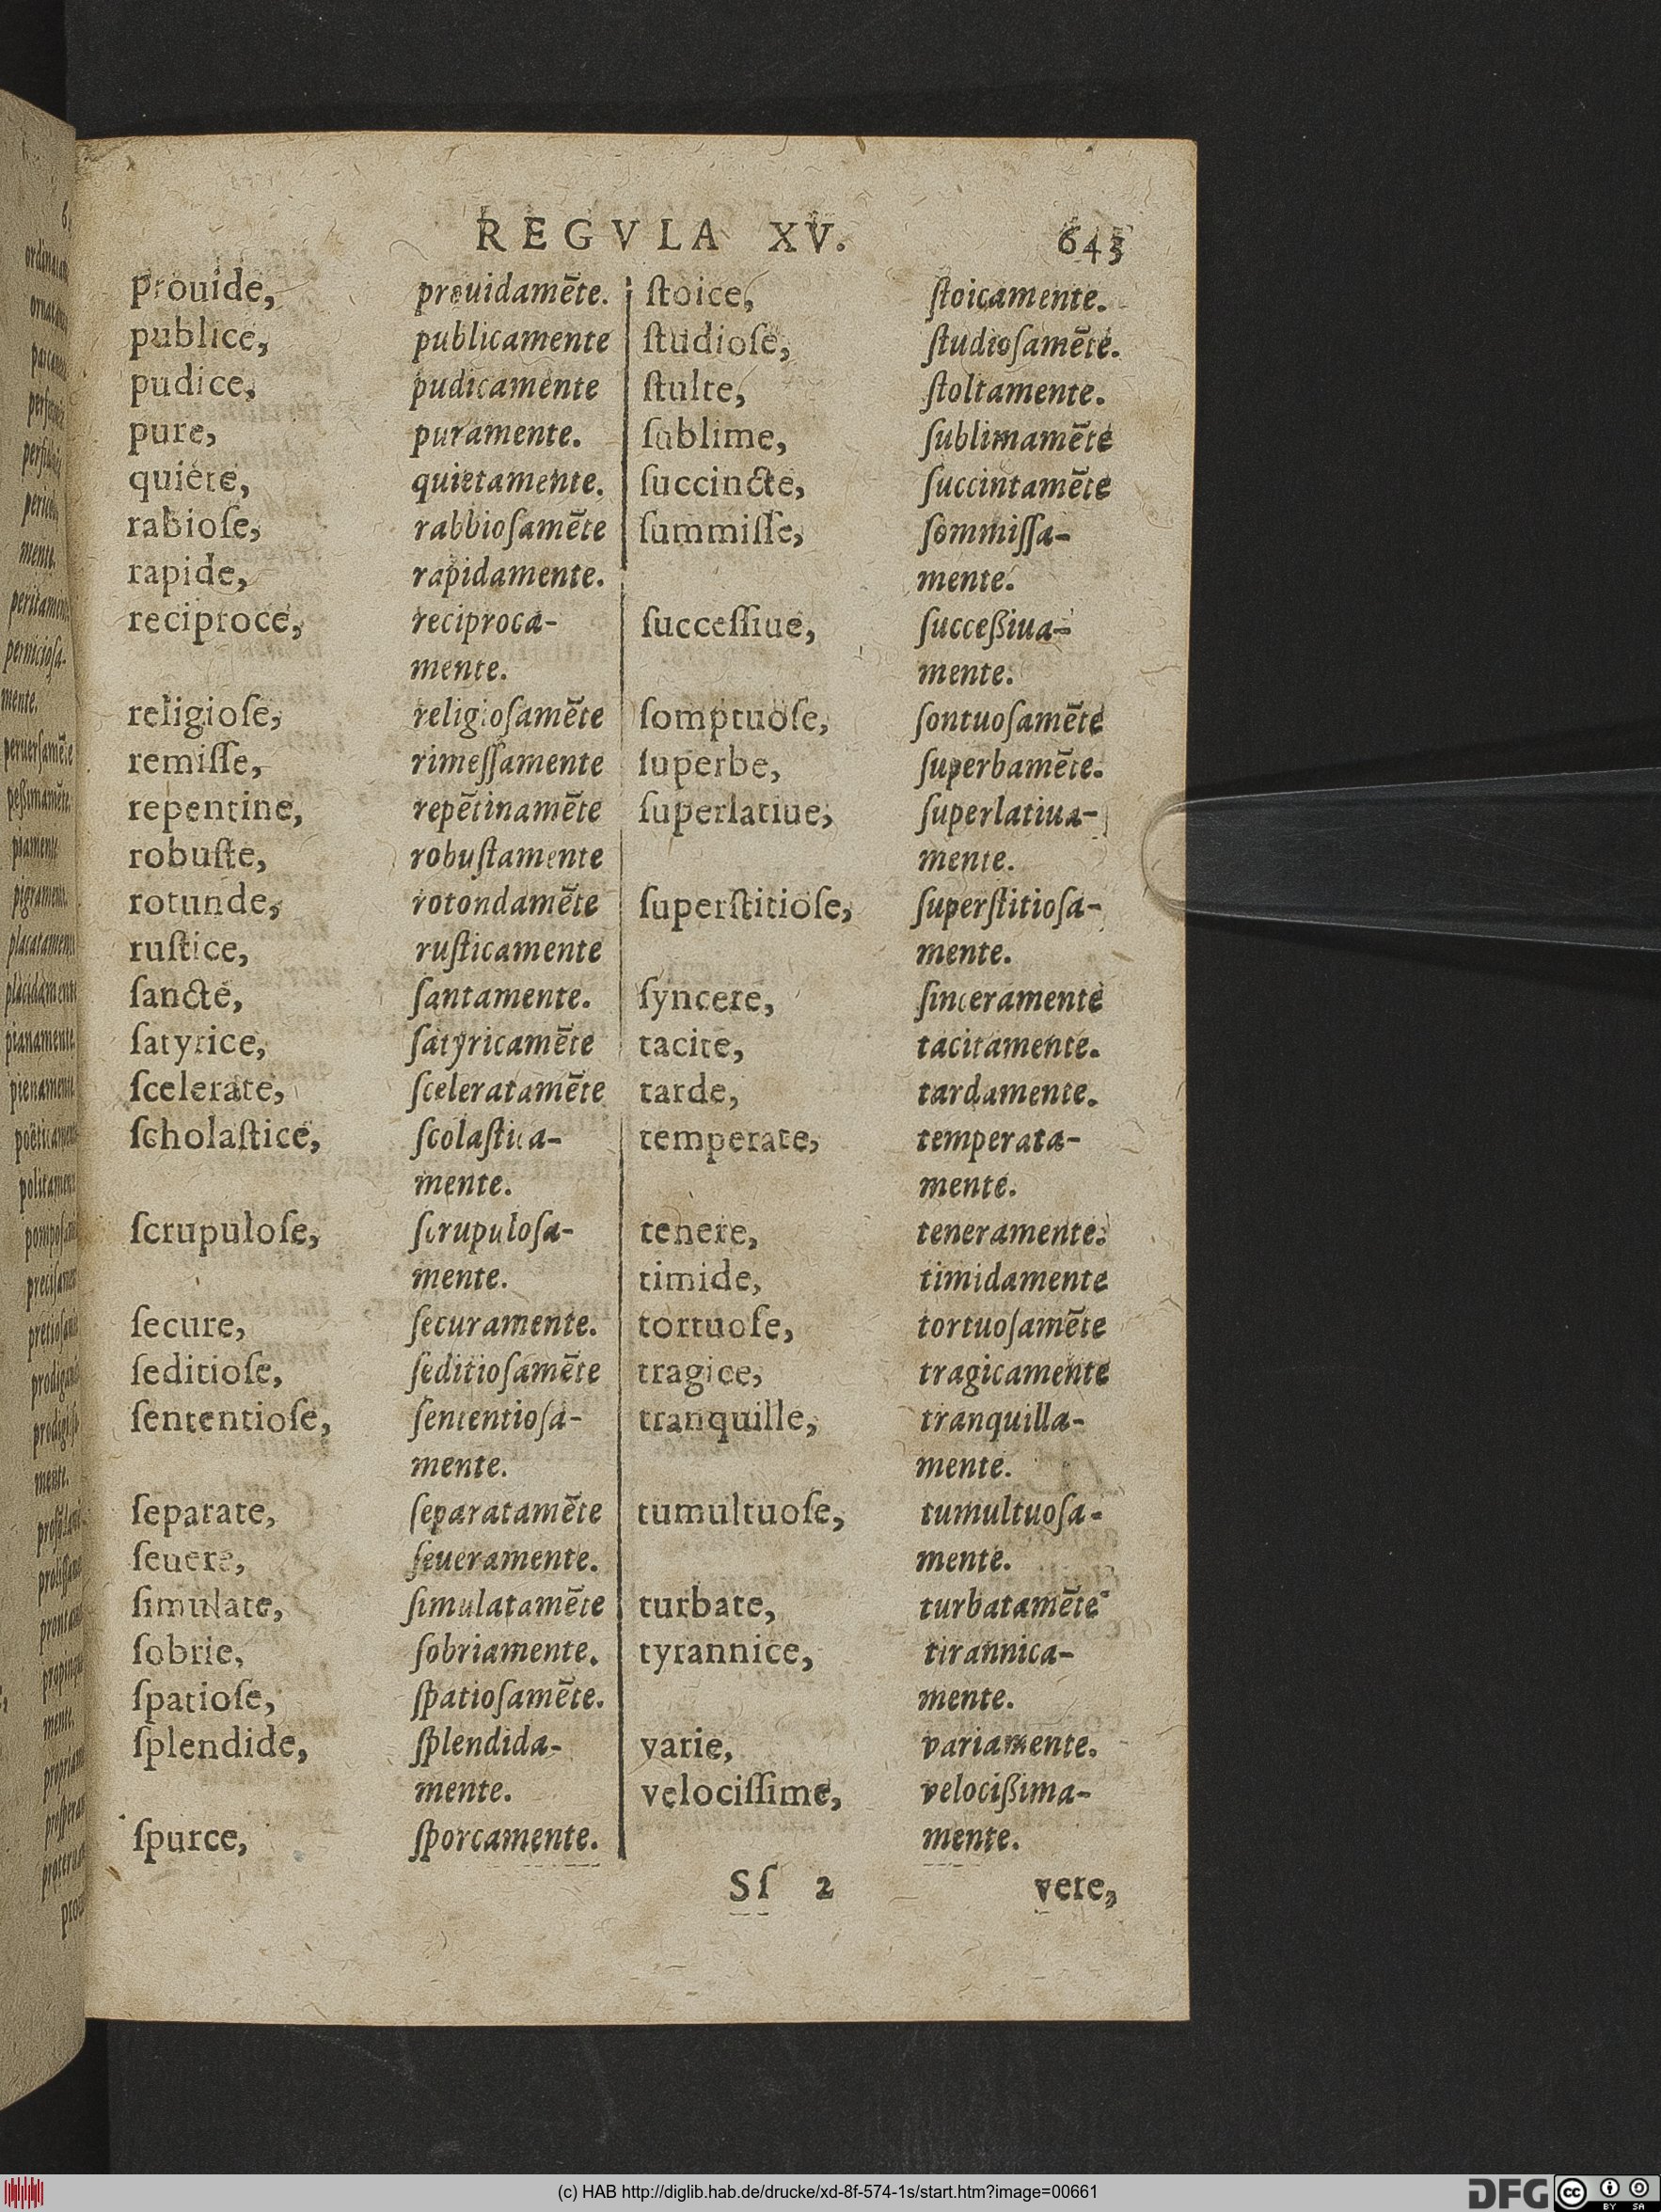 REGVLA XV. 643
prouide, prouidamẽte.
publice, publicamente
pudice, pudicamente
pure, puramente.
quiete, quietamente.
rabioſe, rabbioſamẽte
rapide, rapidamente.
reciproce, reciproca-
mente.
religioſe, religioſamẽte
remiſſe, rimeſſamente
repentine, repẽtinamẽte
robuſte, robuſtamente
rotunde, rotondamẽte
ruſtice, ruſticamente
ſancte, ſantamente.
ſatyrice, ſatyricamẽte
ſcelerate, ſceleratamẽte
ſcholaſtice, ſcolaſtica-
mente.
ſcrupuloſe, ſcrupuloſa-
mente.
ſecure, ſecuramente.
ſeditioſe, ſeditioſamẽte
ſententioſe, ſententioſa-
mente.
ſeparate, ſeparatamẽte
ſeuere, ſeueramente.
ſimulate, ſimulatamẽte
ſobrie, ſobriamente.
ſpatioſe, ſpatioſamẽte.
ſplendide, ſplendida-
mente.
ſpurce, ſporcamente.
ſtoice, ſtoicamente.
ſtudioſe, ſtudioſamẽte.
ſtulte, ſtoltamente.
ſublime, ſublimamẽte
ſuccincte, ſuccintamẽte
ſummiſſe, ſommiſſa-
mente.
ſucceſſiue, ſucceßiua-
mente.
ſomptuoſe, ſontuoſamẽte
ſuperbe, ſuperbamẽte.
ſuperlatiue, ſuperlatiua-
mente.
ſuperſtitioſe, ſuperſtitioſa-
mente.
ſyncere, ſinceramente
tacite, tacitamente.
tarde, tardamente.
temperate, temperata-
mente.
tenere, teneramente.
timide, timidamente
tortuoſe, tortuoſamẽte
tragice, tragicamente
tranquille, tranquilla-
mente.
tumultuoſe, tumultuoſa-
mente.
turbate, turbatamẽte
tyrannice, tirannica-
mente.
varie, variamente.
velociſſime, velocißima-
mente.
Sſ 2 vere,
(c) HAB http://diglib.hab.de/drucke/xd-8f-574-1s/start.htm?image=00661
DFG
cc BY SA